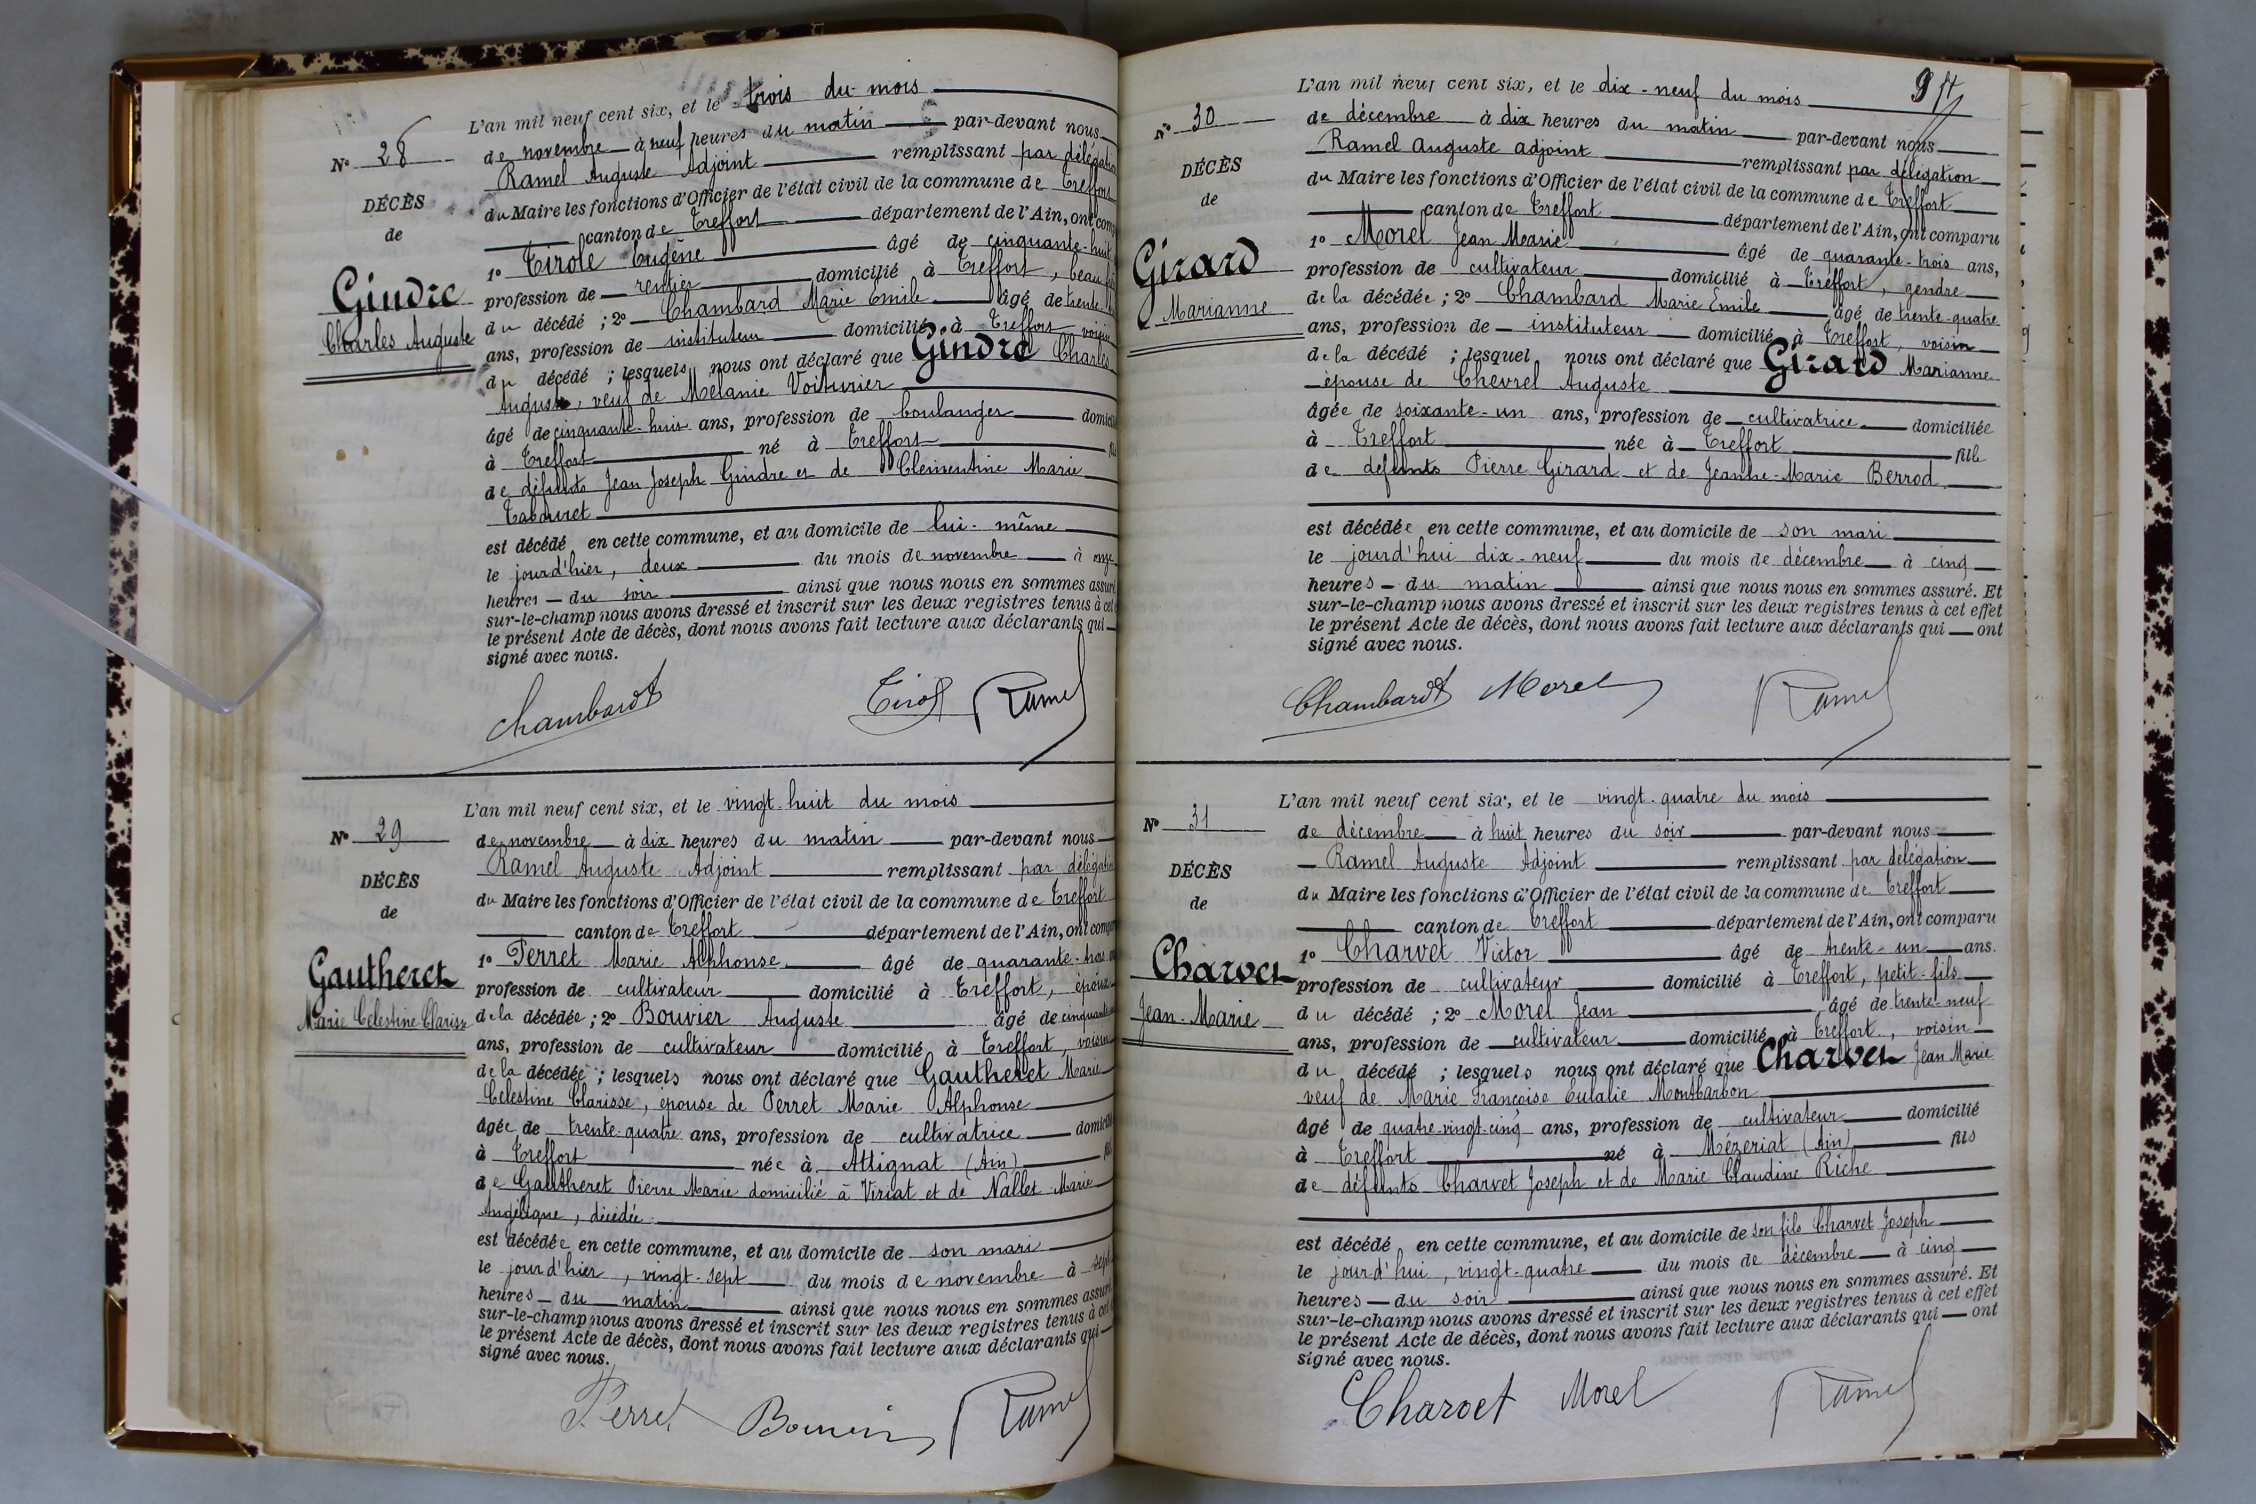 L'an mil neuf cent six, et le trois du mois
N° 28
de novembre à neuf heures du matin par-devant nous
Ramel Auguste Adjoint remplissant par délégation
DÉCÈS
du Maire les fonctions d'Officier de l'état civil de la commune de Treffort
de
canton de Treffort département de l'Ain, ont
1° Tirole Eugène âgé de cinquante-huit
Gindre
profession de rentier domicilié à Treffort,
Charles Auguste
du décédé ; 2° Chambard Marie Emile âgé de trente
ans, profession de instituteur domicilié à Treffort voisin
du décédé ; lesquels nous ont déclaré que Gindre Charles
Auguste, veuf de Mélanie Voiturier
âgé de cinquante-huit ans, profession de boulanger
à Treffort né à Treffort
de défunts Jean Joseph Gindre et de Clémentine Marie
Tabouret
est décédé en cette commune, et au domicile de lui-même
le jour d'hier, deux du mois de novembre à onze
heures du soir ainsi que nous nous en sommes assuré
sur-le-champ nous avons dressé et inscrit sur les deux registres tenus à cet
le présent Acte de décès, dont nous avons fait lecture aux déclarants qui
signé avec nous.
Chambard Tirole Ramel
L'an mil neuf cent six, et le vingt-huit du mois
N° 29
de novembre à dix heures du matin par-devant nous
Ramel Auguste Adjoint remplissant par délégation
DÉCÈS
du Maire les fonctions d'Officier de l'état civil de la commune de Treffort
de
canton de Treffort département de l'Ain, ont
Gautheret
1° Perret Marie Alphonse âgé de quarante-trois
profession de cultivateur domicilié à Treffort, époux
Marie Célestine Clarisse
de la décédée ; 2° Bouvier Auguste âgé de cinquante
ans, profession de cultivateur domicilié à Treffort, voisin
de la décédée ; lesquels nous ont déclaré que Gautheret Marie
Célestine Clarisse, épouse de Perret Marie Alphonse
âgée de trente-quatre ans, profession de cultivatrice
à Treffort née à Attignat (Ain)
de Gautheret Pierre Marie domicilié à Viriat et de Nallet Marie
Angélique, décédée
est décédée en cette commune, et au domicile de son mari
le jour d'hier, vingt-sept du mois de novembre à sept
heures du matin ainsi que nous nous en sommes assuré
sur-le-champ nous avons dressé et inscrit sur les deux registres tenus à cet
le présent Acte de décès, dont nous avons fait lecture aux déclarants qui
signé avec nous.
Perret Bouvier Ramel
L'an mil neuf cent six, et le dix-neuf du mois
N° 30
de décembre à dix heures du matin par-devant nous
Ramel Auguste adjoint remplissant par délégation
DÉCÈS
du Maire les fonctions d'Officier de l'état civil de la commune de Treffort
de
canton de Treffort département de l'Ain, ont comparu
1° Morel Jean Marie âgé de quarante-trois ans,
Girard
profession de cultivateur domicilié à Treffort, gendre
Marianne
de la décédée ; 2° Chambard Marie Emile âgé de trente-quatre
ans, profession de instituteur domicilié à Treffort, voisin
de la décédé ; lesquel nous ont déclaré que Girard Marianne
épouse de Chevrel Auguste
âgée de soixante-un ans, profession de cultivatrice domiciliée
à Treffort née à Treffort fille
de défunts Pierre Girard et de Jeanne-Marie Berrod
est décédée en cette commune, et au domicile de son mari
le jour d'hui dix-neuf du mois de décembre à cinq
heures du matin ainsi que nous nous en sommes assuré. Et
sur-le-champ nous avons dressé et inscrit sur les deux registres tenus à cet effet
le présent Acte de décès, dont nous avons fait lecture aux déclarants qui ont
signé avec nous.
Chambard Morel Ramel
L'an mil neuf cent six, et le vingt-quatre du mois
N° 31
de décembre à huit heures du soir par-devant nous
Ramel Auguste Adjoint remplissant par délégation
DÉCÈS
du Maire les fonctions d'Officier de l'état civil de la commune de Treffort
de
canton de Treffort département de l'Ain, ont comparu
1° Charvet Victor âgé de trente-un ans.
Charvet
profession de cultivateur domicilié à Treffort, petit-fils
Jean-Marie
du décédé ; 2° Morel Jean âgé de trente-neuf
ans, profession de cultivateur domicilié à Treffort, voisin
du décédé ; lesquels nous ont déclaré que Charvet Jean Marie
veuf de Marie Françoise Eulalie Montbarbon
âgé de quatre-vingt-cinq ans, profession de cultivateur domicilié
à Treffort né à Mézeriat (Ain) fils
de défunts Charvet Joseph et de Marie Claudine Riche
est décédé en cette commune, et au domicile de son fils Charvet Joseph
le jour d'hui, vingt-quatre du mois de décembre à cinq
heures du soir ainsi que nous nous en sommes assuré. Et
sur-le-champ nous avons dressé et inscrit sur les deux registres tenus à cet effet
le présent Acte de décès, dont nous avons fait lecture aux déclarants qui ont
signé avec nous.
Charvet Morel Ramel